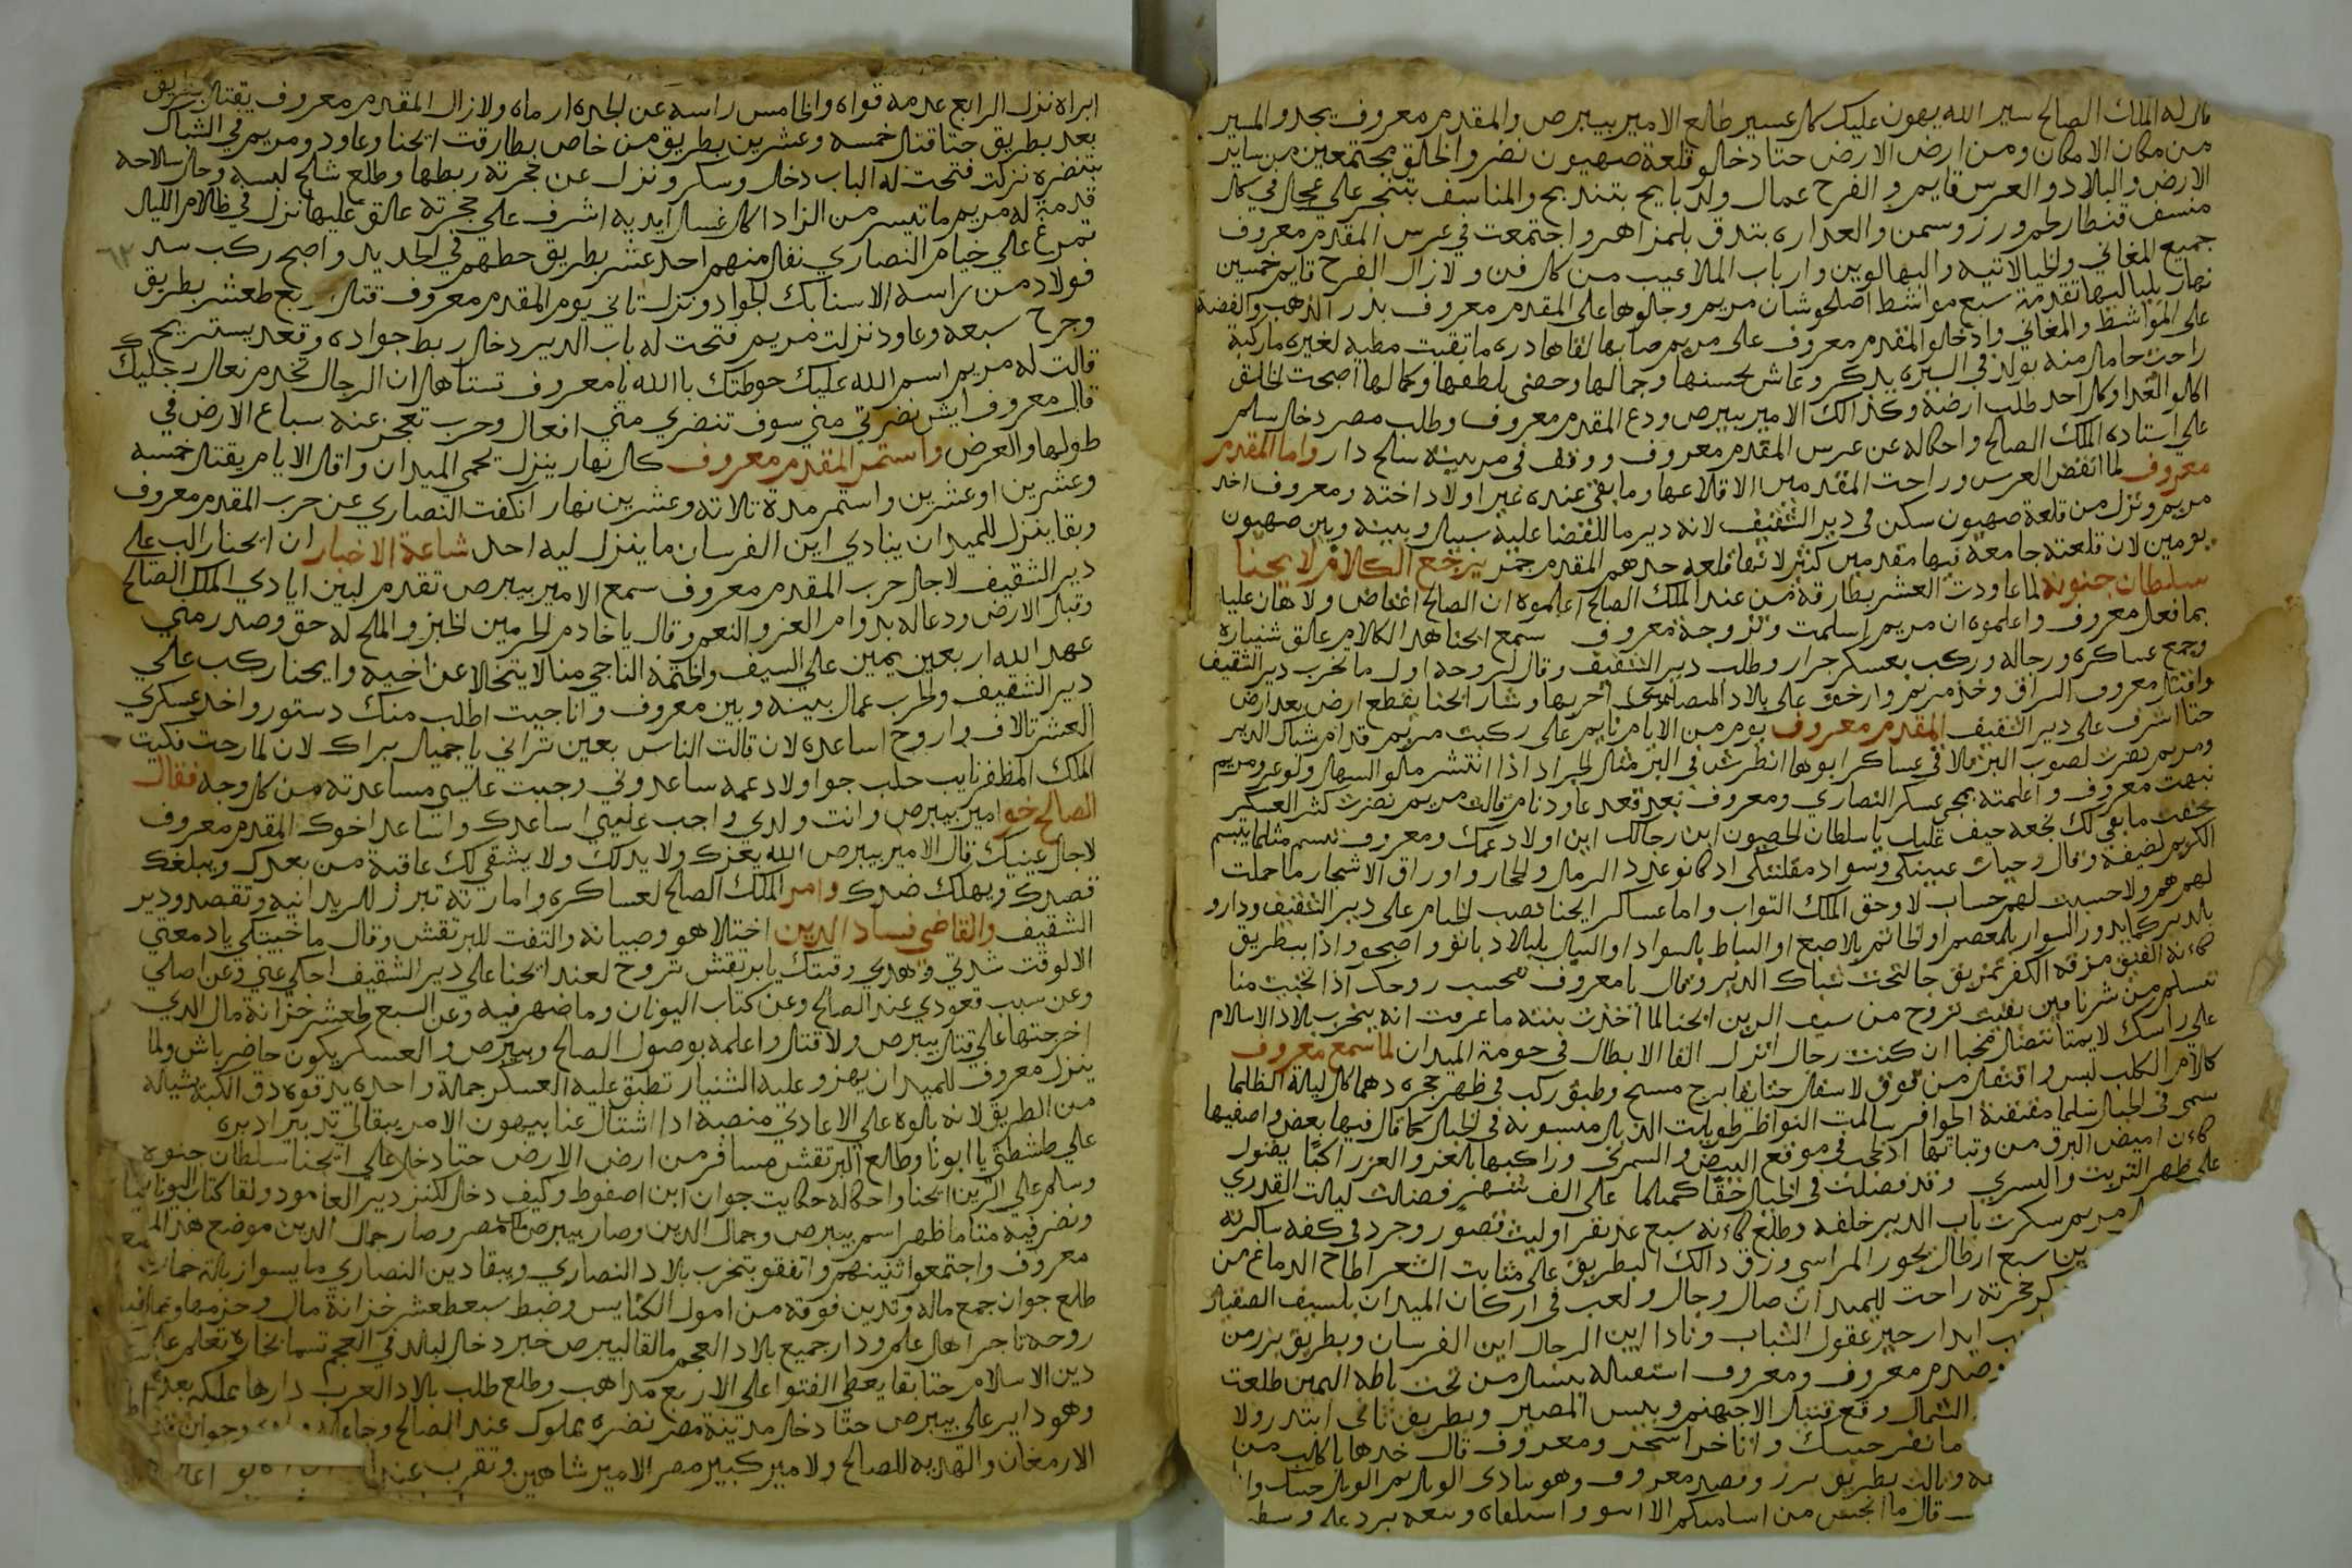 قال له الملك الصالح سير الله يهون عليك كل عسير طالع الامير بيبرص والمقدم معروف يجدو المسير
من مكان الامكان ومن ارض الارض حتا دخالو قلعة صهيون نضرو الخالق مجتمعين من ساير
الارض والبلاد والعرس قايم و الفرح عمال ولد بايح بتندبح والمناسف بتنجر علي عجال في كل
منسف قنطار لحم ورز وسمن والعداره بتدق بلمزاهر واجتمعت في عرس المقدم معروف
جميع المغاني والخيالاتيه والبهالوين وارباب الملاعيب من كل فن ولا زال الفرح قايم خمسين
نهار بلياليها تقدمة سبع مواشط اصلحو شان مريم وجالوها على المقدم معروف بدر الذهب والفضة
على المواشط والمغاني وادخلو المقدم معروف على مريم صابها لقاها دره ما تقبت مطيه لغيره ماركبة
راحت حامل منه بولد في السيره يدكر وعاش بحسنها وجمالها وحضي بلطفها وكمالها اصبحت الخلق
اكلو الغدا وكل احد طلب ارضه وكذالك الامير بيبرص ودع المقدم معروف وطلب مصر دخال سلم
على استاده الملك الصالح واحكاله عن عرس المقدم معروف ووقف في مرتبته سلح دار واما المقدم
معروف لما انفض العرس وراحت المقدمين الا قلاعها وما بقي عنده غير اولاد اخته ومعروف اخد
مريم ونزل من قلعة صهيون سكن في دير الشقيف لانه دير ما للفضا عليه سبيل وبينه وبين صهيون
يومين لان قلعته جامعة فيها مقدمين كتير لانها قلعه حدهم المقدم جمر يرجع الكلام لا يحنا
سلطان جنوه لما عاودت العشر بطارقه من عند الملك الصالح اعلموه ان الصالح اغتاض ولا هان عليه
بما فعل معروف واعلموه ان مريم اسلمت وتزوجة معروف سمع ايحنا هدا الكلام عالق شنياره
وجمع عساكره ورجاله وركب بعسكر جرار وطلب دير الشقيف وقال لروحه اول ما نخرب دير الشقيف
واقتل معروف السراق وخد مريم وارخف على بلاد المسلمين اخربها وشار ايحنا يقطع ارض بعد ارض
حتا اشرف على دير الشقيف المقدم معروف يوم من الايام نايم على ركبت مريم قدام شباك الدير
ومريم نضرت لصوب البر تلاقي عساكر ابوها انطرشت في البر مثل الجراد اذا انتشر ملو السهل والوعر ومريم
نبهت معروف واعلمته بمجي عسكر النصاري ومعروف بعد قعد عاود نام قالت مريم نضرت كتر العسكر
خفت ما بقي لك نجعه حيف عليك يا سلطان الحصون اين رجالك اين اولاد عمك ومعروف تبسم مثلما يتبسم
الكريم لضيفه وقال وحيات عينيكي وسواد مقلتيكي اد كانو عدد الرمال والحجار واوراق الاشجار ما حملت
لهم هم ولا حسبت لهم حساب لا وحق الملك التواب واما عساكر ايحنا نصب الخيام على دير الشقيف ودارو
بالدير كما يدور السوار بالمعصم او الخاتم بلاصبع او البياض بالسواد او النيل بلبلاد باتو واصبحو واذا ببطريق
كانه الفنيق مزقه الكفر تمزيق جا لتحت شباك الدير وقال يا معروف تحسب روحك اذا تخبيت منا
تسلم من شرنا مين بقيت تروح من سيف الرين ايحنا لما اخذت بنته ما عرفت انه يخرب بلاد الاسلام
على راسك لا يمتا تتضل مخبا ان كنت رجال انزل القا الابطال في حومة الميدان لما سمع معروف
كلام الكلب لبس واقتفل من فوق لاسفل حتا بقا برج مسبح وطبق ركب في ظهر حجره دهما كل ليلة الظلما
على ظهر التربت والسري وقد فضلت في الخيل حقا كمثلما على الف شهر فضلت ليلت القدري
مريم سكرت باب الدير خلفه وطلع كانه سبع عند نقر او ليث قصور وجرد في كفه ساكرته
ين سبع ارطال بحور المراسي وزق دالك البطريق على منابت الشعر اطاح الدماغ من
كر حجرته راحت للميدان صال وجال ولعب في اركان الميدان بلسيف الصقيل
ايدار حير عقول الشباب ونادا اين الرجال اين الفرسان وبطريق برز من
وصدم معروف ومعروف استقباله بيسار من تحت باطه اليمين طلعت
الشمال وقع قتيل الا جهنم وبيس المصير وبطريق تاني ابتدر ولا
ومعروف قال خدها يا كلب من
وتالت بطريق برز وصدم معروف وهو ينادي
ابراه نزل الرابع عدمه قواه والخامس راسه عن لجده ارماه ولا زال المقدم معروف يقتل بطريق
بعد بطريق حتا قتل خمسه وعشرين بطريق من خاص بطارقت ايحنا وعاود ومريم في الشباك
بتنضره نزلت فتحت له الباب دخال وسكر ونزل عن حجرته ربطها وطلع شلح لبسه وحل سلاحه
قدمة له مريم ما تيسر من الزاد اكل غسل ايديه اشرف علي حجرته عالق عليها نزل في ظلام الليل
تمرغ علي خيام النصاري نقل منهم احد عشر بطريق حطهم في الحديد واصبح ركب سد
فولاد من راسه الا سنابك الجواد ونزل تاني يوم المقدم معروف قتل اربع طعشر بطريق
وجرح سبعه وعاود نزلت مريم فتحت له باب الدير دخال ربط جواده وقعد يستريح
قالت له مريم اسم الله عليك حوطتك با الله يا معروف تستاهل ان الرجال تخدم نعال رجليك
قال معروف ايش نضرتي مني سوف تنضري مني افعال وحرب تعجز عنه سباع الارض في
طولها والعرض واستمر المقدم معروف كل نهار ينزل يحمي الميدان واقل الايام يقتل خمسه
وعشرين او عشرين واستمر مدة تلاته وعشرين نهار انكفت النصاري عن حرب المقدم معروف
وبقا ينزل للميدان ينادي اين الفرسان ما ينزل ليه احد شاعة الاخبار ان ايحنا راكب على
دير الشقيف لاجل حرب المقدم معروف سمع الامير بيبرص تقدم لبين ايادي الملك الصالح
وقبل الارض ودعاله بدوام العز والنعم وقال يا خادم الحرمين الخبز والملح له حق وصدر مني
عهد الله اربعين يمين علي السيف والختمه الناجي منا لا يتخالا عن اخيه وايحنا ركب علي
دير الشقيف والحرب عمال بينه وبين معروف وانا جيت اطلب منك دستور واخد عسكري
العشرتالاف واروح اساعده لان قالت الناس بعين تراني يا جميل براك لان لما رحت نكيت
الملك المظفر نايب حلب جوا ولاد عمه ساعدوني وجبت عليي مساعدته من كل وجه فقال
الصالح خو امير بيبرص وانت ولدي واجب عليي اساعدك واساعد اخوك المقدم معروف
لاجل عينيك قال الامير بيبرص الله يعزك ولا يدلك ولا يشقي لك عاقبة من بعدك ويبلغك
قصدك ويهلك ضدك وامر الملك الصالح لعساكره وامارته تبرز للريدانيه وتقصد دير
الشقيف والقاضي فساد الدين اختلا هو وصبيانه والتفت للبرتقش وقال ما خبيتكي يا دمعتي
الا لوقت شدتي وهدي وقتك يا برتقش تروح لعند ايحنا علي دير الشقيف احكي عني وعن اصلي
وعن سبب قعودي عند الصالح وعن كتاب اليونان وما ضهر فيه وعن السبع طعشر خزانة مال الدي
اخرجتها علي قتل بيبرص ولا قتل واعلمه بوصول الصالح وبيبرص والعسكر يكون حاضر باش ولما
ينزل معروف للميدان يهزو عليه الشنيار تطبق عليه العسكر جمله واحده يدقوه دق الكبه بشياله
من الطريق لانه بالوه علي الاعادي منصبه ادا اشتال عنا بيهون الامر يبقا لي تدبير ادبره
علي طشطتي يا ابونا وطالع البرتقش مسافر من ارض الارض حتا دخل علي ايحنا سلطان جنوه
وسلم علي الرين ايحنا واحكاله حكايت جوان ابن اصفوط وكيف دخال لكنز دير العامود ولقا كتاب اليونان
ونضر فيه متا ما ظهر اسم بيبرص وجمال الدين وصار بيبرص ملك مصر وصار جمال الدين موضع هدا
معروف واجتمعوا اثنينهم واتفقو بتخرب بلاد النصاري ويبقا دين النصاري ما يسوا زبالة خمار
طلع جوان جمع ماله وتدين فوقه من امول الكنايس وضبط سبعطعشر خزانة مال وحزمها
روحه تاجر اهل علم ودار جميع بلاد العجم ما لقا لبيبرص خبر دخال لبلد في العجم تسما بخاره تعلم علم
دين الاسلام حتا بقا يعطي الفتوا علي الاربع مداهب وطلع طلب بلاد العرب دارها
وهو داير علي بيبرص حتا دخل مدينة مصر نضره مملوك عند الصالح
الارمغان والهديه للصالح ولامير كبير مصر الامير شاهين وتقرب عند